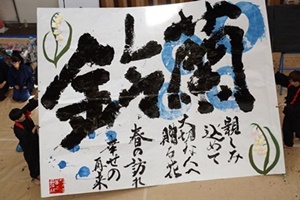 鈴蘭
親しみ
込めて
大切な人へ
贈る花
春の訪れ
幸せの再来